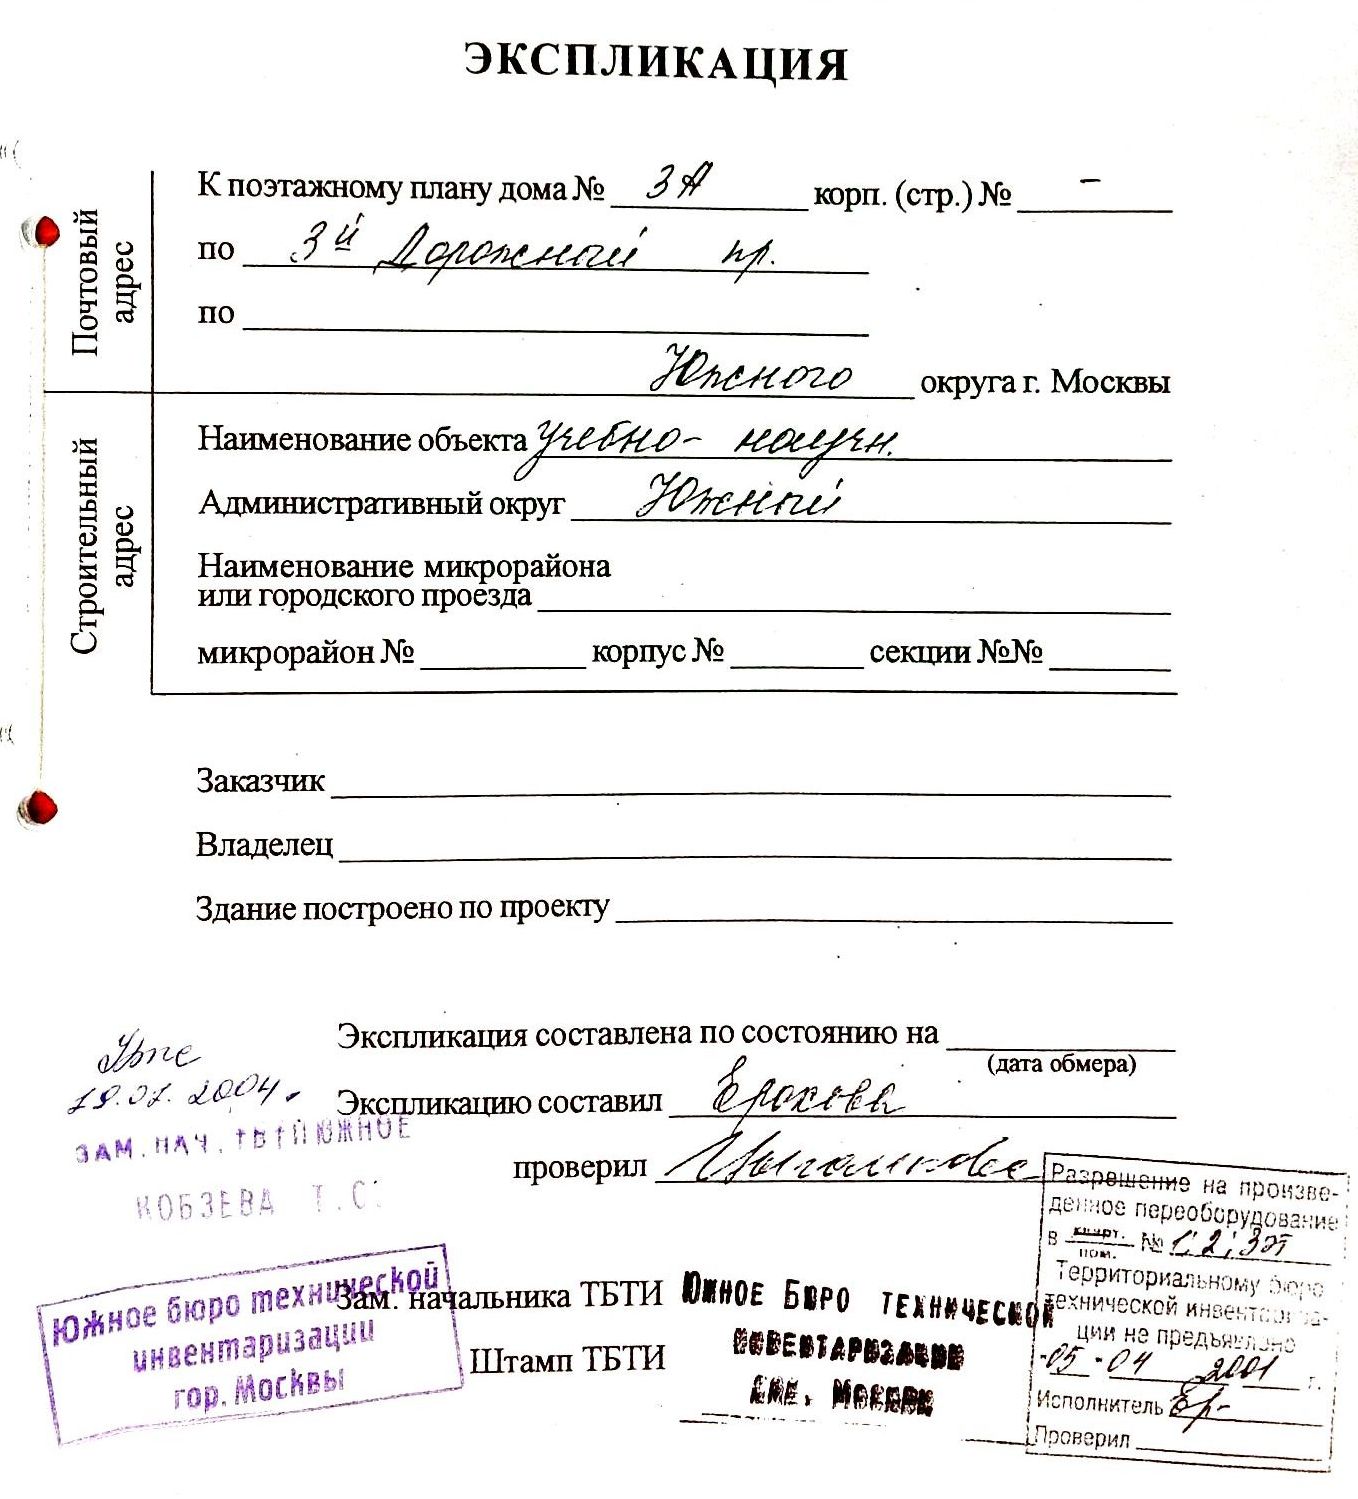 ЭКСПЛИКАЦИЯ
Почтовый адрес
К поэтажному плану дома № 3А корп. (стр.) № –
по 3й Дорожный пр.
по
Южного округа г. Москвы
Строительный адрес
Наименование объекта учебно- научн.
Административный округ Южный
Наименование микрорайона
или городского проезда
микрорайон № корпус № секции №№
Заказчик
Владелец
Здание построено по проекту
Экспликация составлена по состоянию на
(дата обмера)
Экспликацию составил Ерохова
проверил
19.07.2004.
ЗАМ. НАЧ. ТБТИ ЮЖНОЕ
КОБЗЕВА Т.С.
Южное бюро технической
инвентаризации
гор. Москвы
Зам. начальника ТБТИ
Штамп ТБТИ
ЮЖНОЕ БЮРО ТЕХНИЧЕСКОЙ
ИНВЕНТАРИЗАЦИИ
ГОР. МОСКВЫ
Разрешение на произве-
денное переоборудование
в кварт. пом. № 1; 2; 3 эт
Территориальному бюро
технической инвентариза-
ции не предъявлено
05 04 2001 г.
Исполнитель
Проверил